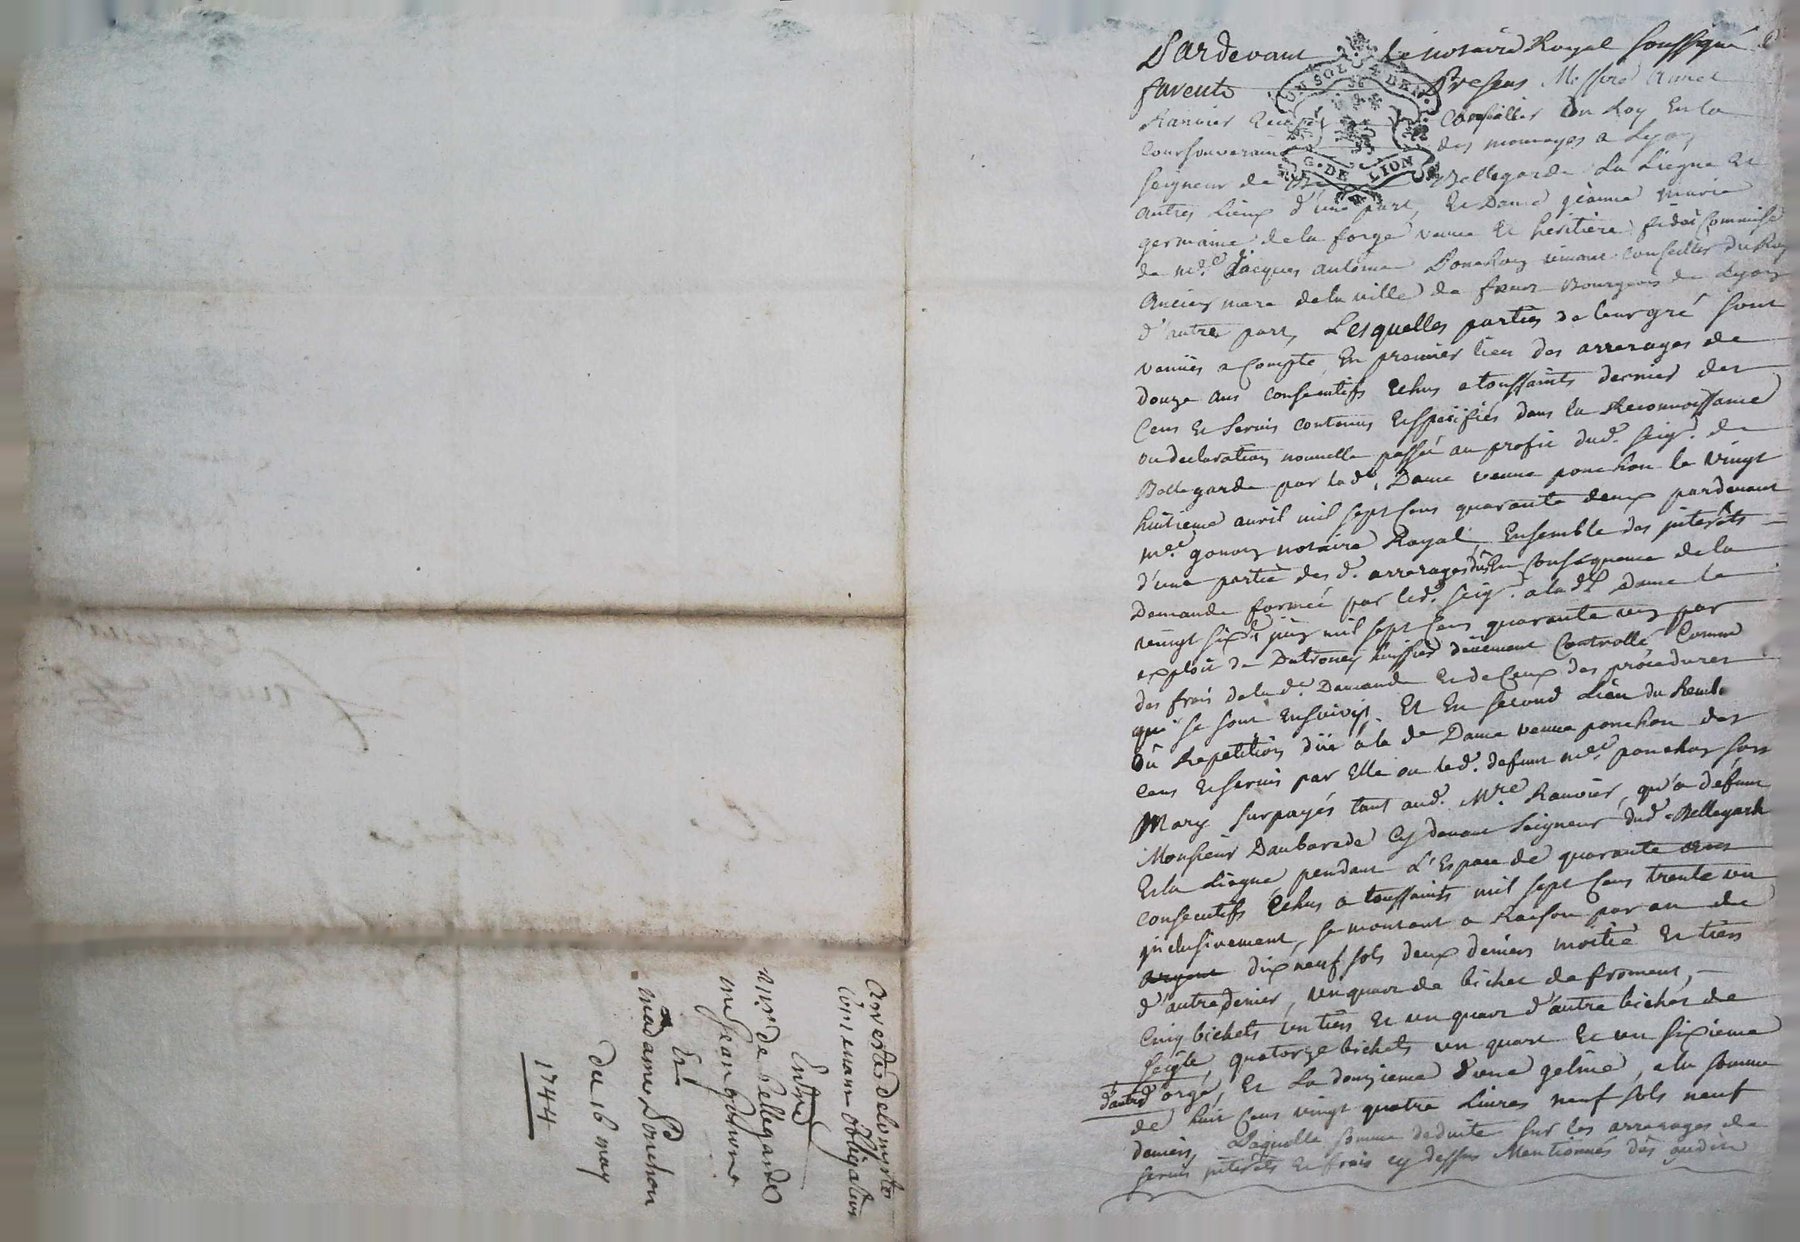 Pardevant le notaire Royal soussigné
furent Presens Messire Annet
Ranvier Conseiller Du Roy En la
Cour souveraine des monnoyes a Lyon
UN SOL 4 DEN.
G. DE LION
seigneur de Bellegarde La Liegue Et
autres Lieux d'une part, Et Dame jeanne Marie
germaine de la forge veuve Et héritière fideicommise
de Me. Jacques antoine Ponchon vivant Conseiller du Roy
Ancien maire de la ville de feurs Bourgeois de Lyon
d'autre part, Lesquelles parties de leur gré sont
venües a Compte, En premier lieu des arrerages de
douze ans consecutifs Echus a toussaints dernier des
Cens Et Servis contenus Et spécifiés dans la Reconnoissance
ou declaration nouvelle passée au profit dud. seigr. de
Bellegarde par lade. Dame veuve ponchon le vingt
huitieme avril mil sept Cens quarante deux pardevant
Me. gonon notaire Royal, Ensemble des interêts
d'une partie desd. arrerages dûs En Conséquence de la
Demande formée par led. seigr. a lade. Dame le
vingt six juin mil sept Cens quarante un par
exploit de huissier düement Controllé Comme
des frais de lade. Demande Et de Ceux des procedures
qui se sont Ensuivis. Et En second Lieu du Remb.
Ou Repetition düe a lade Dame veuve ponchon des
Cens Et Servis par Elle ou led. defunt Me. ponchon son
Mary surpayés tant aud. Mre Ranvier, qu'a défunt
Monsieur Daubarede Cy devant Seigneur dud. Bellegarde
Et la Liegue pendant L'Espace de quarante ans
consecutifs Echus a toussaints mil sept Cens trente un
inclusivement, se montant a Raison par an de
argent dix neuf sols deux deniers moitié Et tiers
d'autre denier, un quart de bichet de froment,
Cinq bichets un tiers Et un quart d'autre bichet de
Seigle, quatorze bichets un quart Et un sixieme
d'autre d'orge, Et La douzieme d'une geline, a la somme
de huit Cens vingt quatre Livres neuf sols neuf
deniers, Laquelle somme deduite sur les arrerages de
servis interêts Et frais cy dessus Mentionnés dès
Arresté de Compte
Contenant obligation
Entre
Mr. de Bellegarde
Et
madame Ponchon
du 16 may
1744